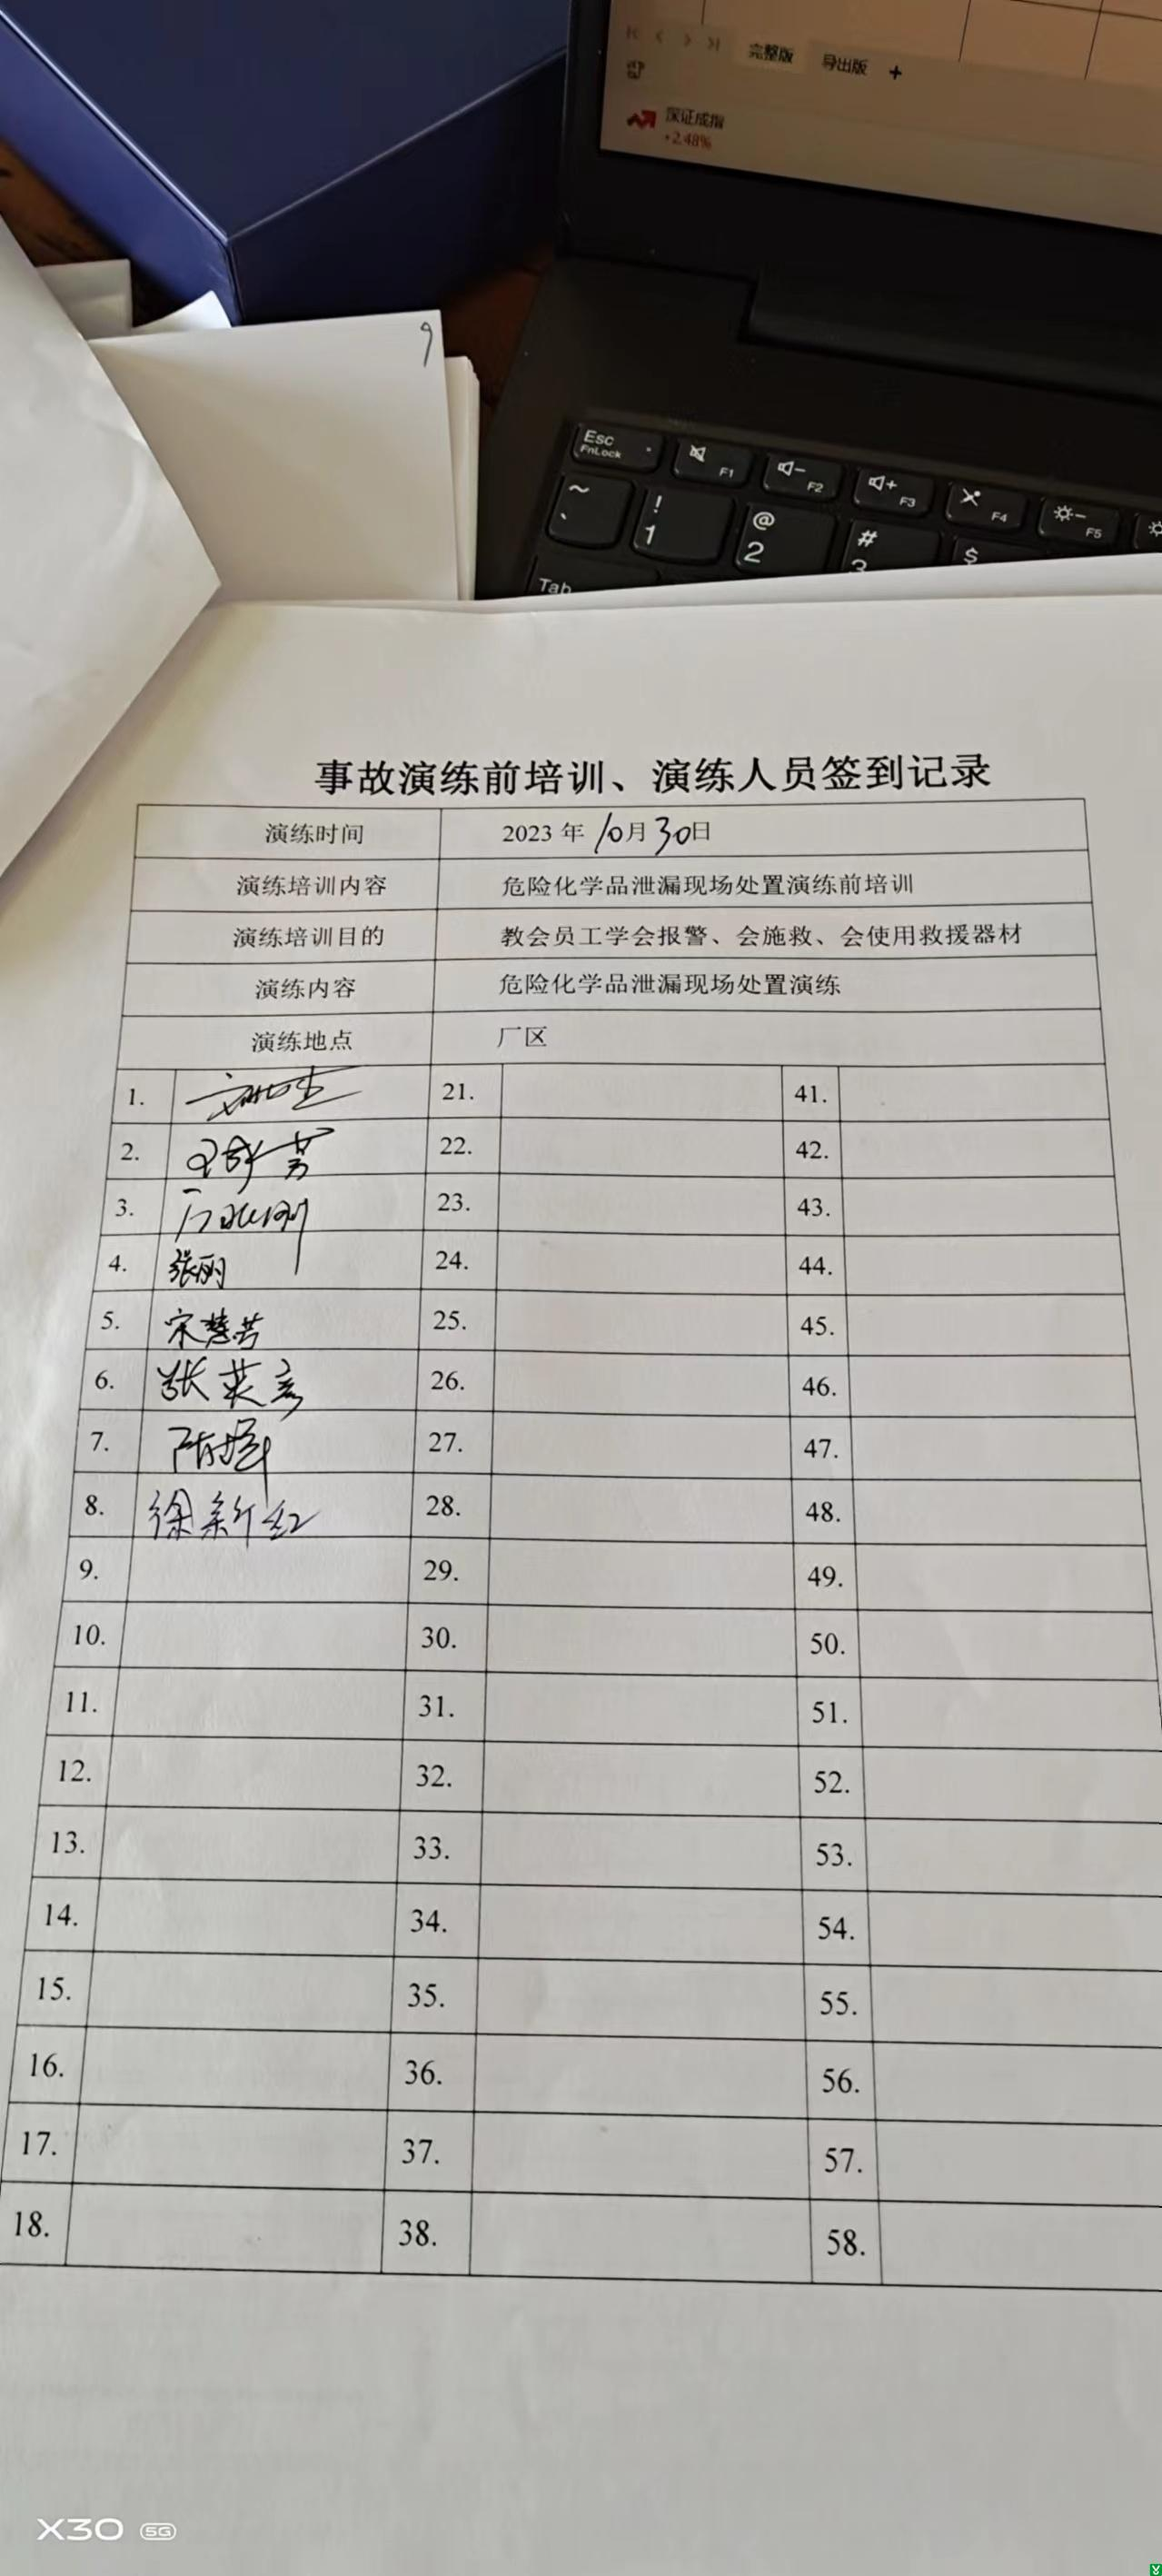 完整版 导出版 +
深证成指
+2.48%
9
Esc
FnLock
F1
F2
F3
F4
F5
~
`
!
1
@
2
#
3
$
Tab
事故演练前培训、演练人员签到记录
演练时间 2023 年 10月30日
演练培训内容 危险化学品泄漏现场处置演练前培训
演练培训目的 教会员工学会报警、会施救、会使用救援器材
演练内容 危险化学品泄漏现场处置演练
演练地点 厂区
1. 21. 41.
2. 22. 42.
3. 23. 43.
4. 张丽 24. 44.
5. 宋慧芳 25. 45.
6. 张英彦 26. 46.
7. 27. 47.
8. 徐新红 28. 48.
9. 29. 49.
10. 30. 50.
11. 31. 51.
12. 32. 52.
13. 33. 53.
14. 34. 54.
15. 35. 55.
16. 36. 56.
17. 37. 57.
18. 38. 58.
X30 5G